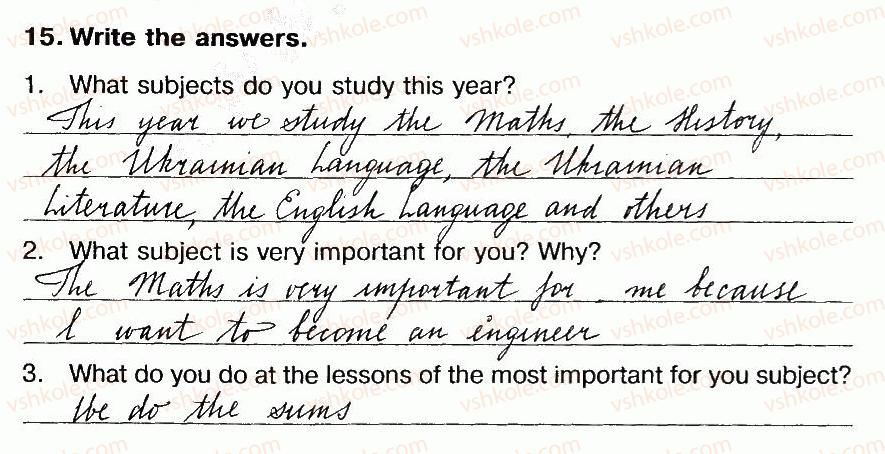 15. Write the answers.
1. What subjects do you study this year?
This year we study the Maths, the History,
the Ukrainian Language, the Ukrainian
Literature, the English Language and others
2. What subject is very important for you? Why?
The Maths is very important for me because
I want to become an engineer
3. What do you do at the lessons of the most important for you subject?
We do the sums
vshkole.com